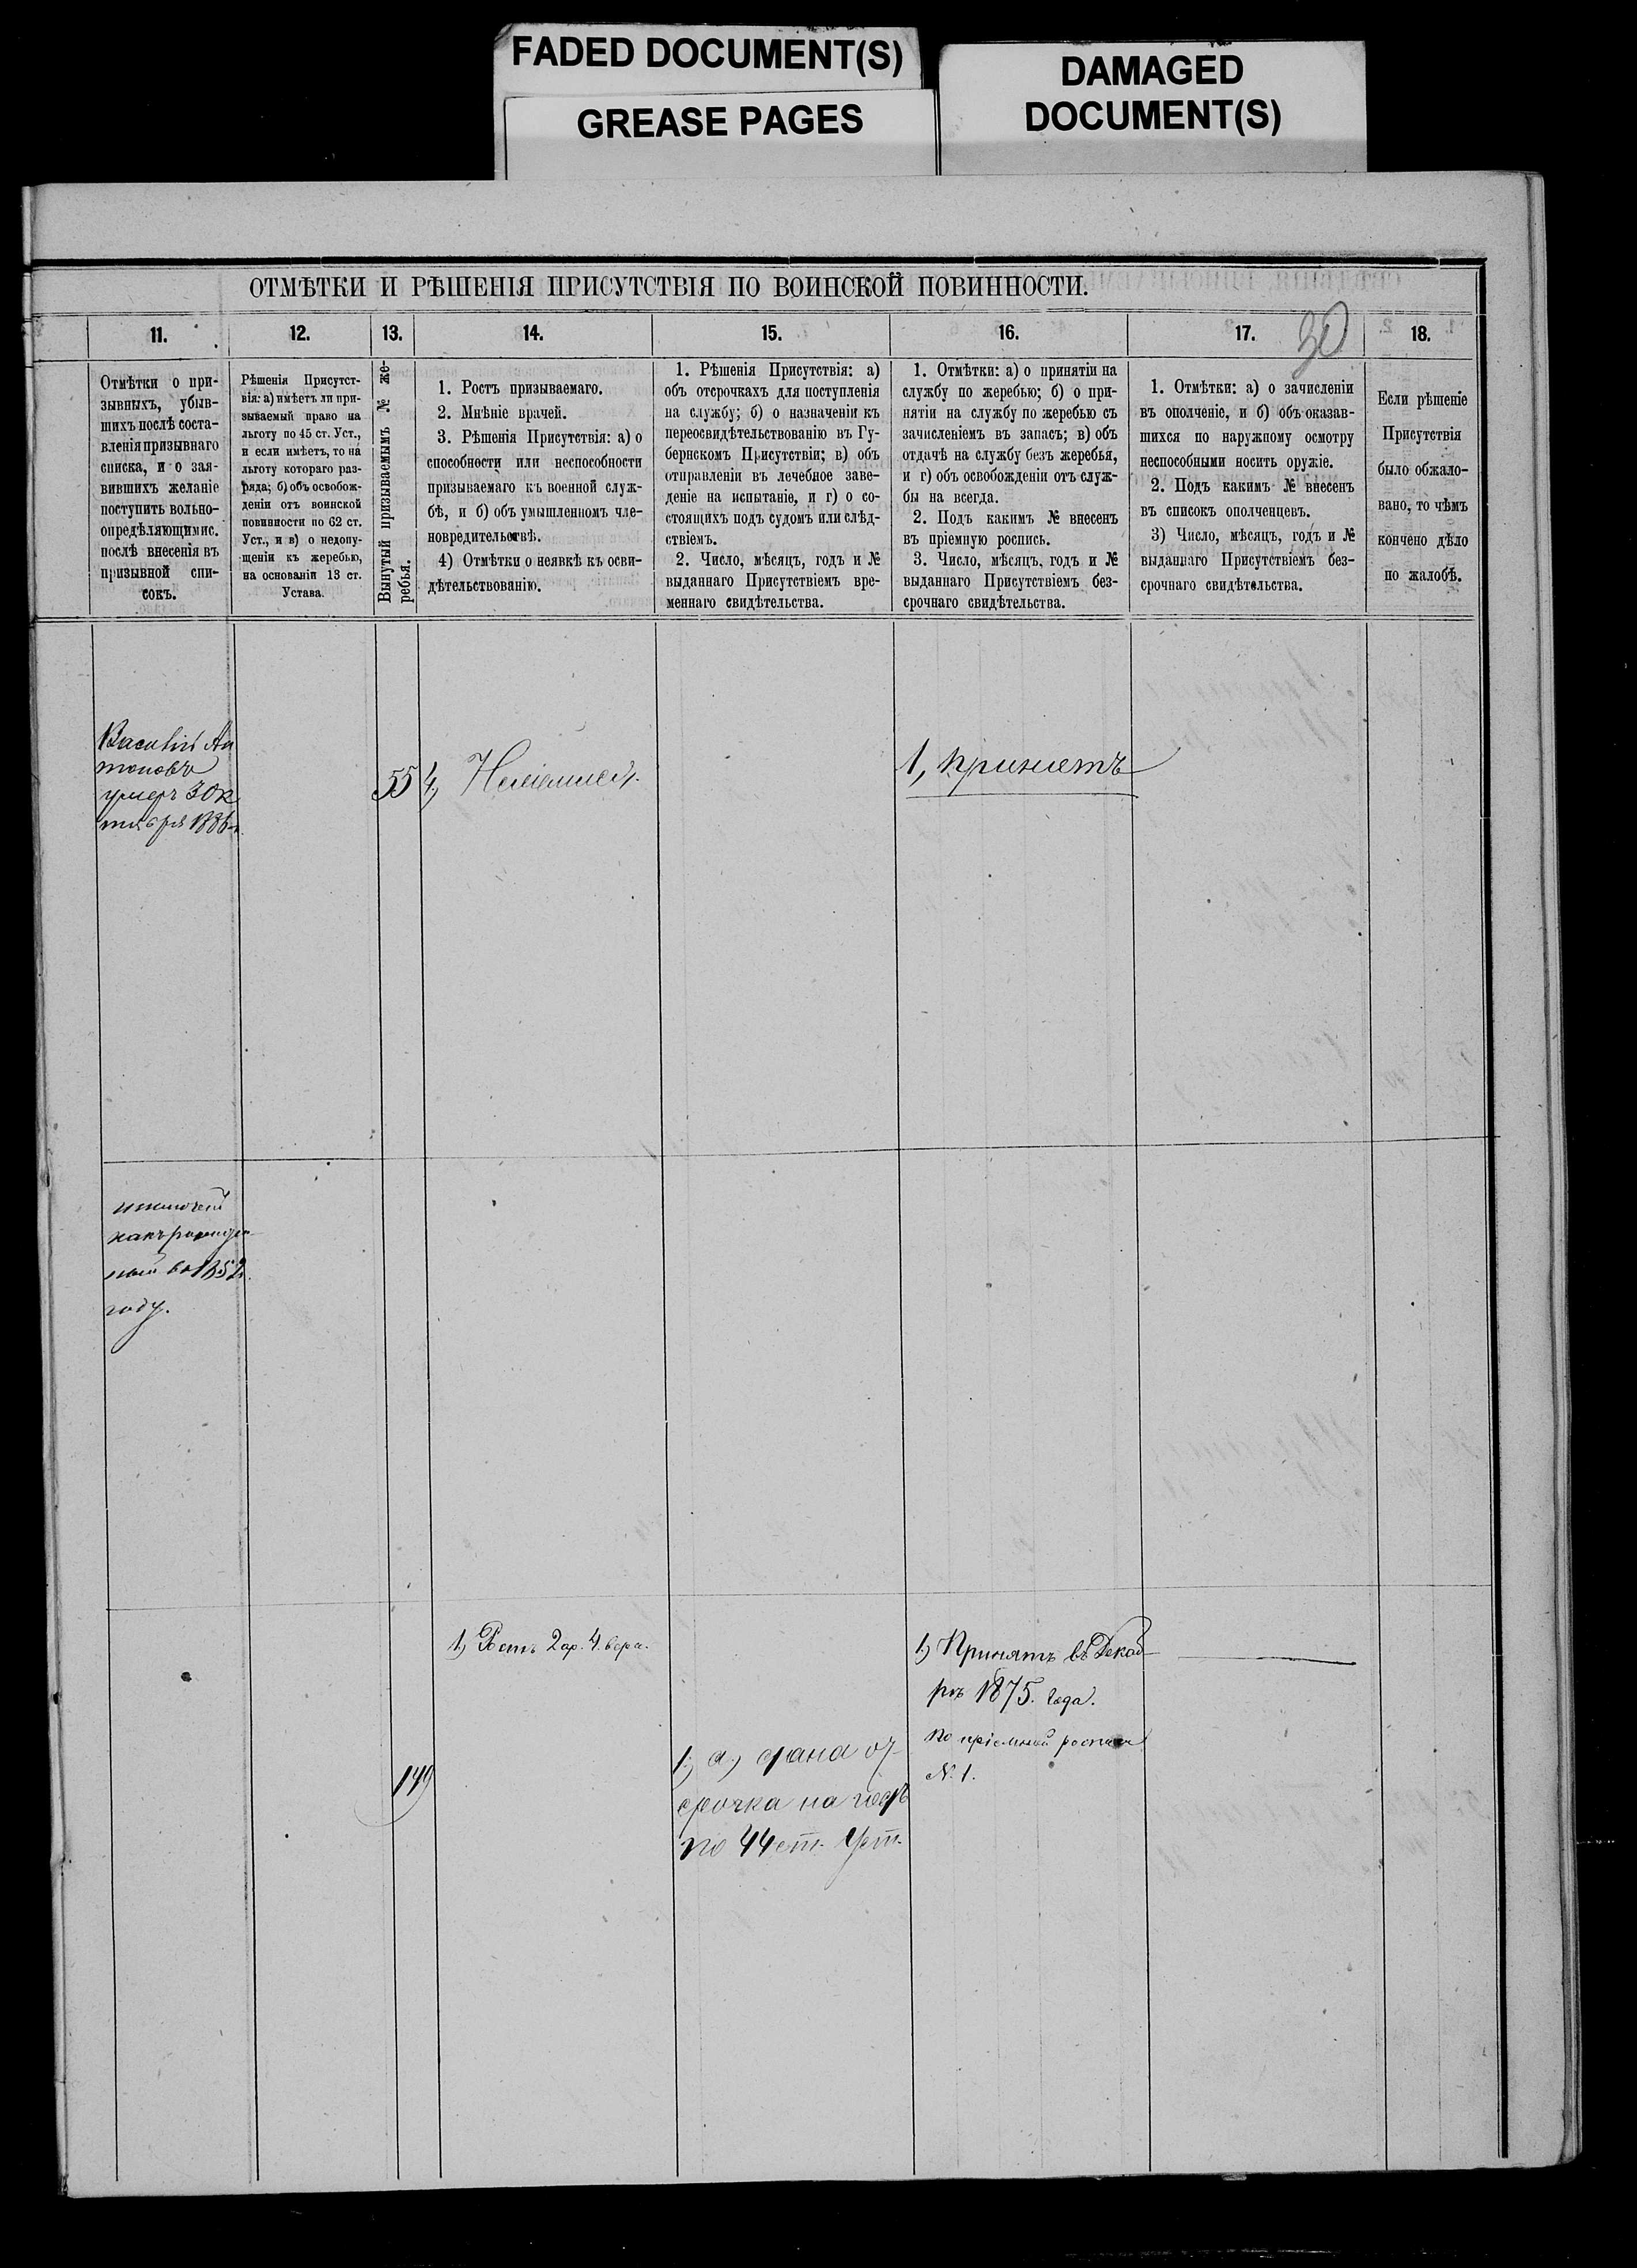 FADED DOCUMENT(S)
GREASE PAGES
DAMAGED
DOCUMENT(S)
ОТМѢТКИ И РѢШЕНІЯ ПРИСУТСТВІЯ ПО ВОИНСКОЙ ПОВИННОСТИ.
30
11.
12.
13.
14.
15.
16.
17.
18.
Отмѣтки о при-
зывныхъ, убыв-
шихъ послѣ соста-
вленія призывнаго
списка, и о зая-
вившихъ желаніе
поступить вольно-
опредѣляющимис.
послѣ внесенія въ
призывной спи-
сокъ.
Рѣшенія Присутст-
вія: а) имѣетъ ли при-
зываемый право на
льготу по 45 ст. Уст.,
и если имѣетъ, то на
льготу котораго раз-
ряда; б) объ освобож-
деніи отъ воинской
повинности по 62 ст.
Уст., и в) о недопу-
щеніи къ жеребью,
на основаніи 13 ст.
Устава.
Вынутый призываемымъ № же-
ребья.
1. Ростъ призываемаго.
2. Мнѣніе врачей.
3. Рѣшенія Присутствія: а) о
способности или неспособности
призываемаго къ военной служ-
бѣ, и б) объ умышленномъ чле-
новредительствѣ.
4) Отмѣтки о неявкѣ къ осви-
дѣтельствованію.
1. Рѣшенія Присутствія: а)
объ отсрочкахъ для поступленія
на службу; б) о назначеніи къ
переосвидѣтельствованію въ Гу-
бернскомъ Присутствіи; в) объ
отправленіи въ лечебное заве-
деніе на испытаніе, и г) о со-
стоящихъ подъ судомъ или слѣд-
ствіемъ.
2. Число, мѣсяцъ, годъ и №
выданнаго Присутствіемъ вре-
меннаго свидѣтельства.
1. Отмѣтки: а) о принятіи на
службу по жеребью; б) о при-
нятіи на службу по жеребью съ
зачисленіемъ въ запасъ; в) объ
отдачѣ на службу безъ жеребья,
и г) объ освобожденіи отъ служ-
бы на всегда.
2. Подъ какимъ № внесенъ
въ пріемную роспись.
3. Число, мѣсяцъ, годъ и №
выданнаго Присутствіемъ без-
срочнаго свидѣтельства.
1. Отмѣтки: а) о зачисленіи
въ ополченіе, и б) объ оказав-
шихся по наружному осмотру
неспособными носить оружіе.
2. Подъ какимъ № внесенъ
въ списокъ ополченцевъ.
3) Число, мѣсяцъ, годъ и №
выданнаго Присутствіемъ без-
срочнаго свидѣтельства.
Если рѣшеніе
Присутствія
было обжало-
вано, то чѣмъ
кончено дѣло
по жалобѣ.
Василій Ан
тоновъ
умеръ 3 Ок
тября
55
4,
1, принетъ
годъ.
1) Ростъ 2 ар. 4. верш.
149
1.) а.) дана от-
срочка на годъ
по 44 ст. Уст.
1.) Принятъ въ Декаб-
рѣ 1875. года.
по пріемной росписи
№ 1.